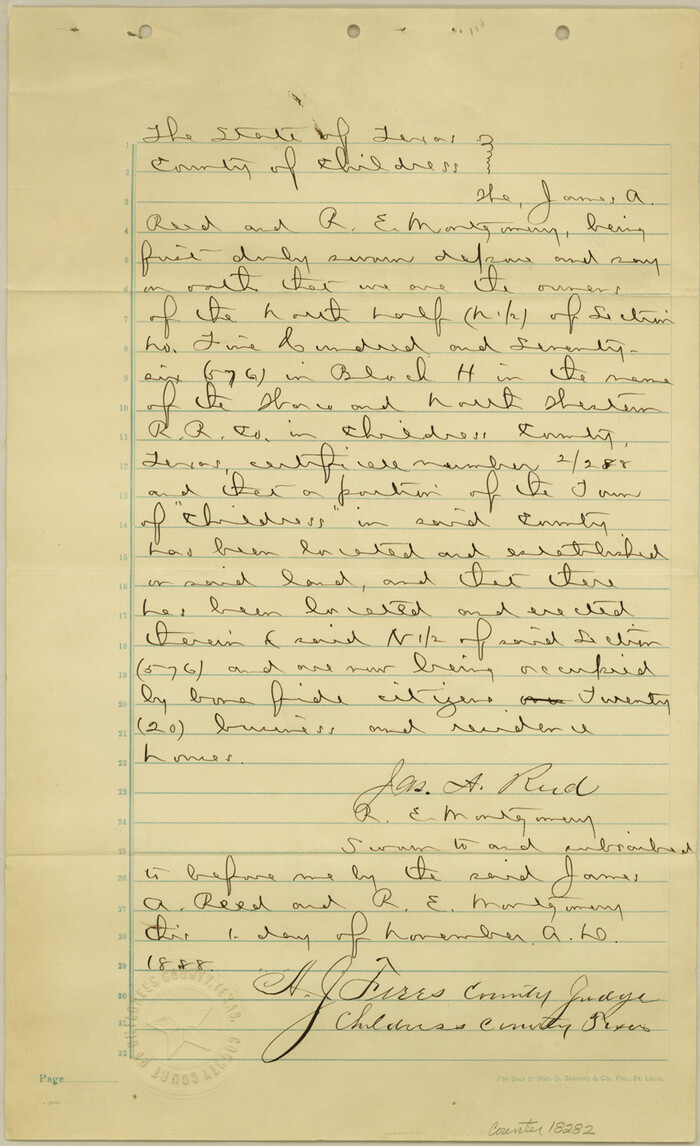 The State of Texas
County of Childress
We, James A.
Reed and R. E. Montgomery, being
first duly sworn depose and say
on oath that we are the owners
of the North half (N 1/2) of Section
No. Five Hundred and Seventy-
six (576) in Block H in the name
of the Waco and North Western
R. R. Co. in Childress County,
Texas, certificate number 2/288
and that a portion of the Town
of "Childress" in said County
has been located and established
on said land, and that there
has been located and erected
therein & said N 1/2 of said Section
(576) and are now being occupied
by bona fide citizens Twenty
(20) business and residence
houses.
Jas. A. Reed
R. E. Montgomery
Sworn to and subscribed
to before me by the said James
A. Reed and R. E. Montgomery
this 1- day of November A. D.
1888.
A. J. Fires County Judge
Childress County Texas
COUNTY COURT OF CHILDRESS COUNTY, TEXAS.
Page
For Sale by Geo. D. Barnard & Co., Prs., St. Louis.
Counter 18282
1
2
3
4
5
6
7
8
9
10
11
12
13
14
15
16
17
18
19
20
21
22
23
24
25
26
27
28
29
30
31
32